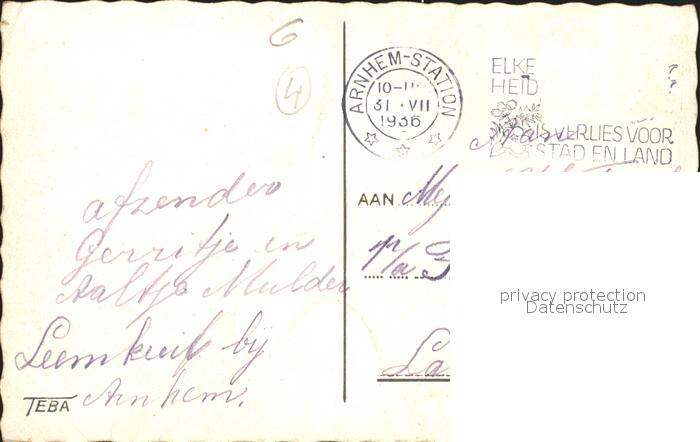 6
4
ARNHEM-STATION
10-11
31 VII
1936
ELKE
HEID
IS VERLIES VOOR
STAD EN LAND
Aan
AAN Mej
p/a
La
privacy protection
Datenschutz
afzender
Gerritje en
Aaltje Mulder
Leemkuil bij
Arnhem.
TEBA